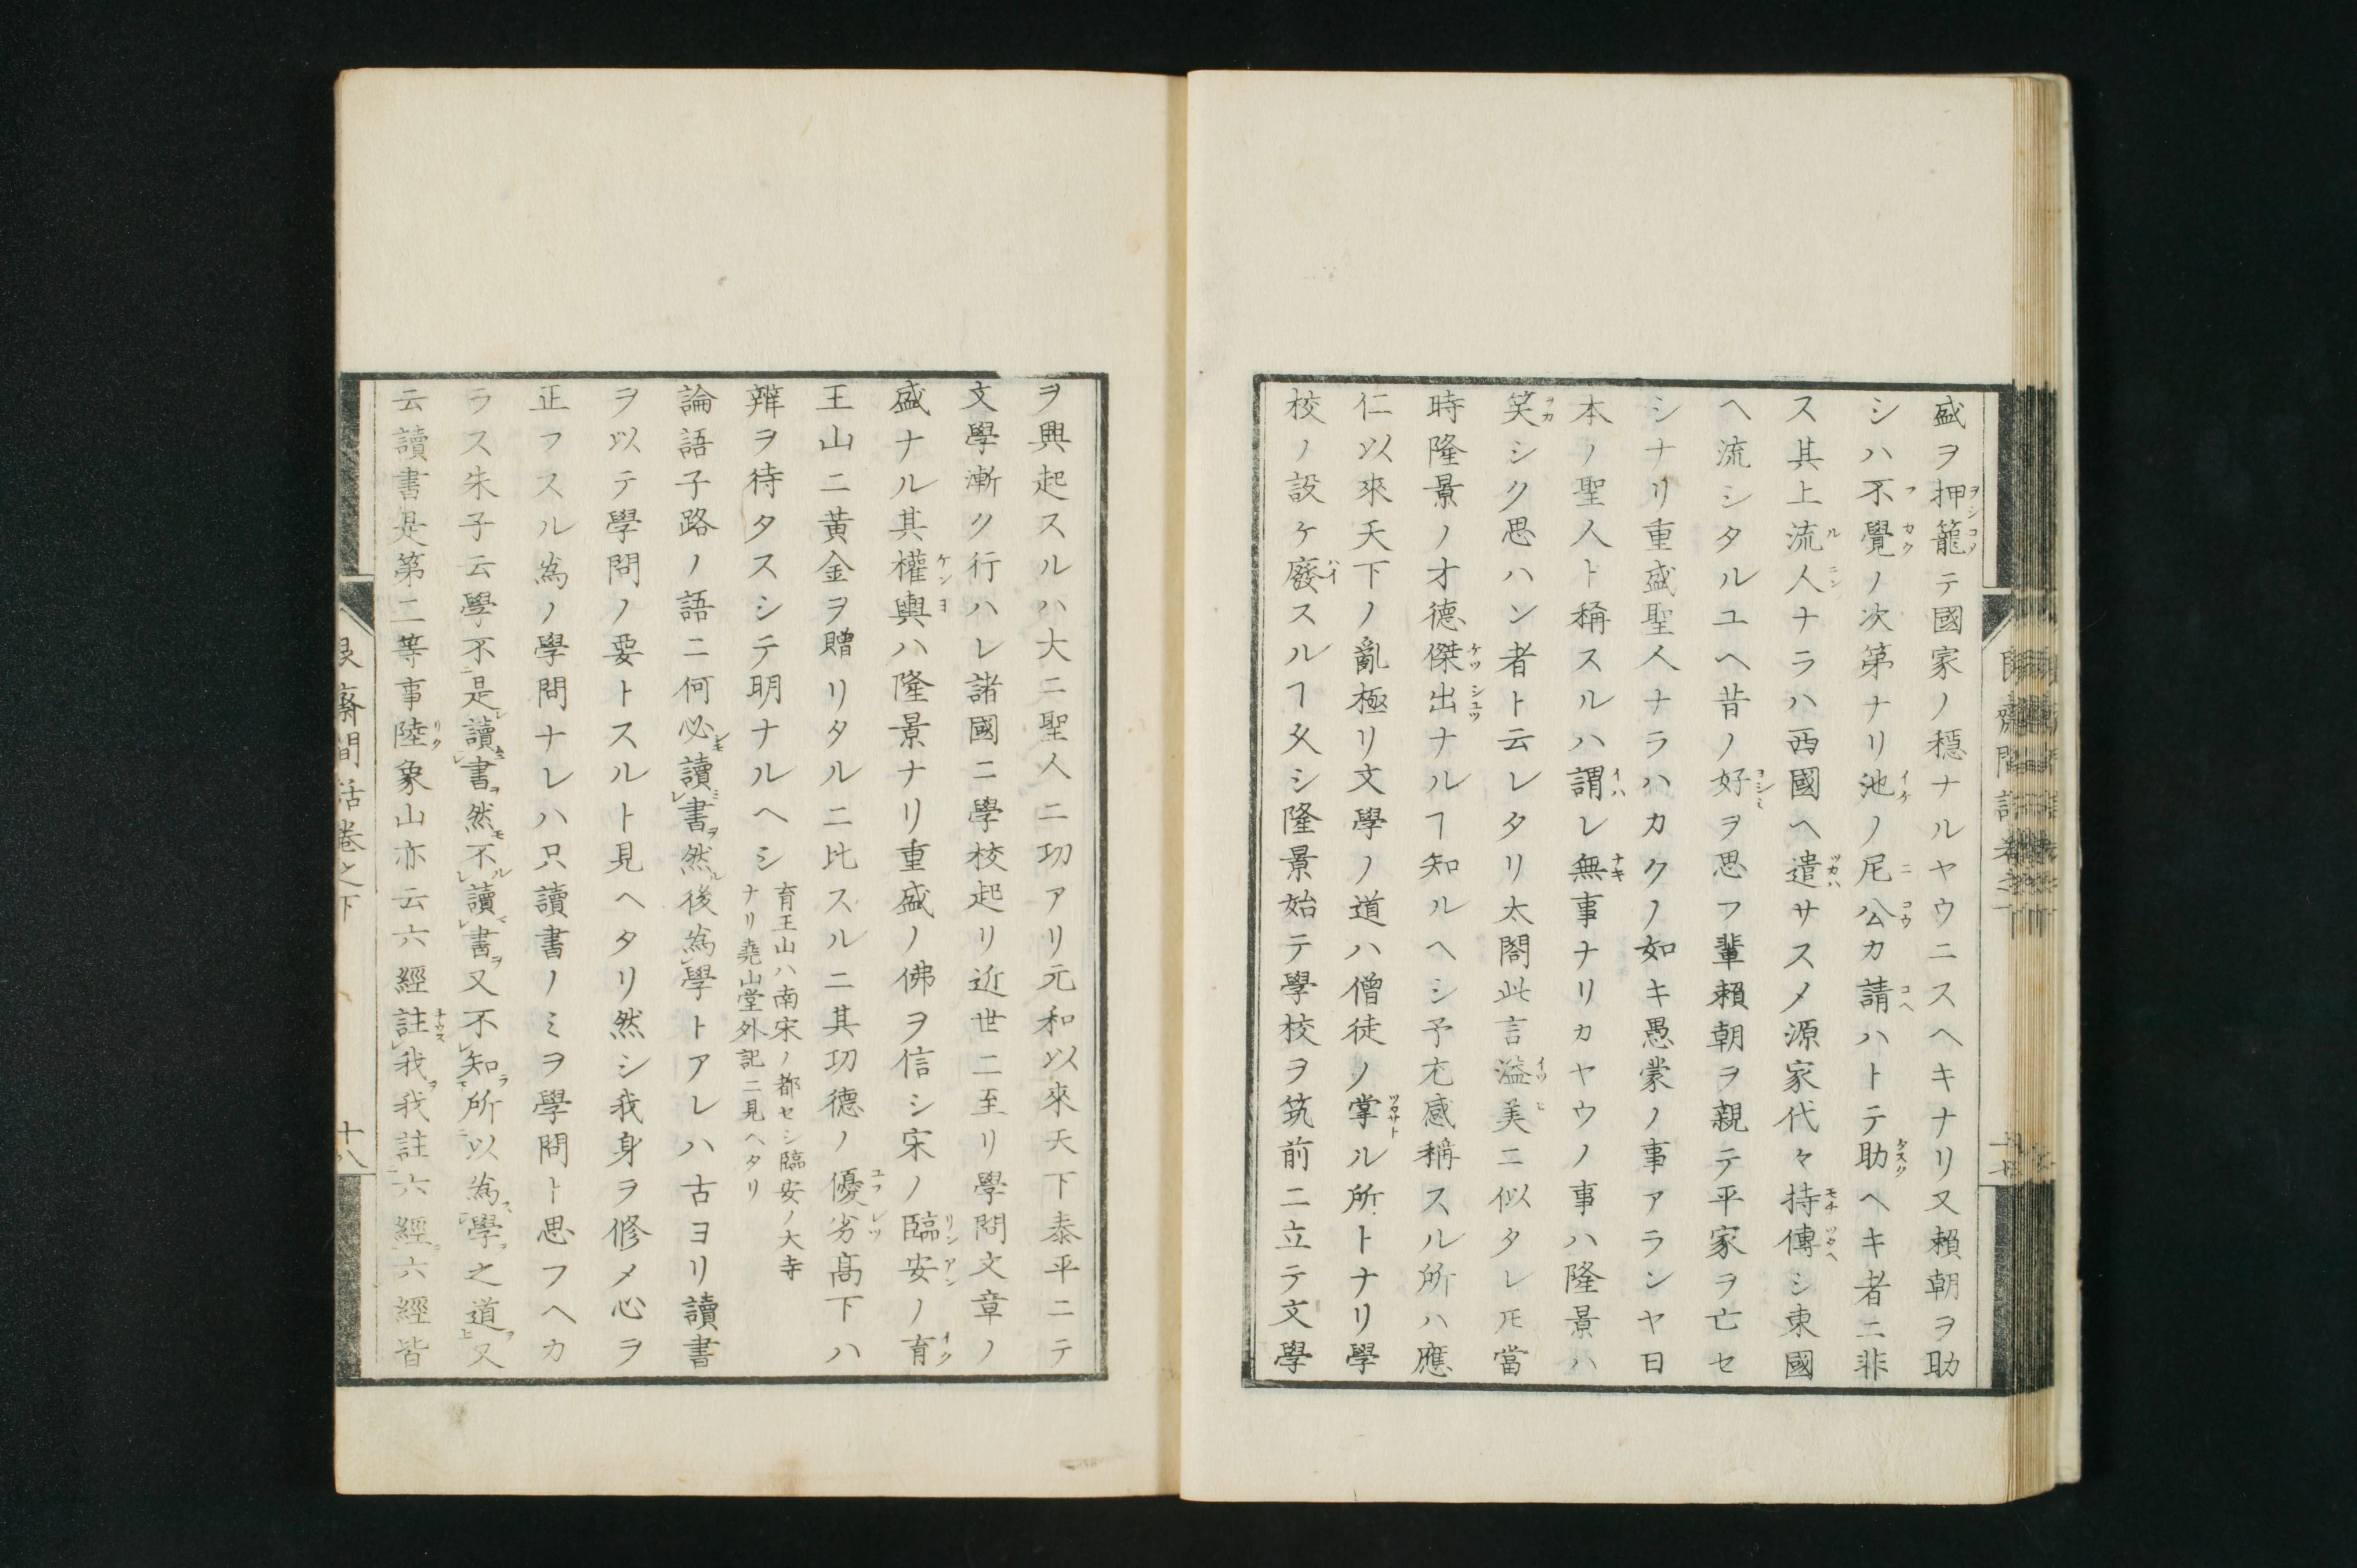 盛ヲ押籠テ國家ノ穏ナルヤウニスヘキナリ又賴朝ヲ助
シハ不覺ノ次第ナリ池ノ尼公カ請ハトテ助ヘキ者ニ非
ス其上流人ナラハ西國ヘ遣サスメ源家代々持傳シ東國
ヘ流シタルユヘ昔ノ好ヲ思フ輩賴朝ヲ親テ平家ヲ亡セ
シナリ重盛聖人ナラハカクノ如キ愚蒙ノ事アランヤ日
本ノ聖人ト稱スルハ謂レ無事ナリカヤウノ事ハ隆景ハ
笑シク思ハン者ト云レタリ太閤此言溢美ニ似タレ𪜈當
時隆景ノ才德傑出ナルヿ知ルヘシ予尤感稱スル所ハ應
仁以來天下ノ亂極リ文學ノ道ハ僧徒ノ掌ル所トナリ學
校ノ設ケ廢スルヿ久シ隆景始テ學校ヲ筑前ニ立テ文學
ヲ興起スルハ大ニ聖人ニ功アリ元和以來天下泰平ニテ
文學漸ク行ハレ諸國ニ學校起リ近世ニ至リ學問文章ノ
盛ナル其權輿ハ隆景ナリ重盛ノ佛ヲ信シ宋ノ臨安ノ育
王山ニ黃金ヲ贈リタルニ比スルニ其功德ノ優劣高下ハ
辨ヲ待タスシテ明ナルヘシ育王山ハ南宋ノ都セシ臨安ノ大寺
ナリ堯山堂外記ニ見ヘタリ
論語子路ノ語ニ何必讀書然後爲學トアレハ古ヨリ讀書
ヲ以テ學問ノ要トスルト見ヘタリ然シ我身ヲ修メ心ヲ
正フスル爲ノ學問ナレハ只讀書ノミヲ學問ト思フヘカ
ラス朱子云學不是讀書然不讀書又不知所以爲學之道又
云讀書是第二等事陸象山亦云六經註我我註六經六經皆
艮齋間話卷之下　十八